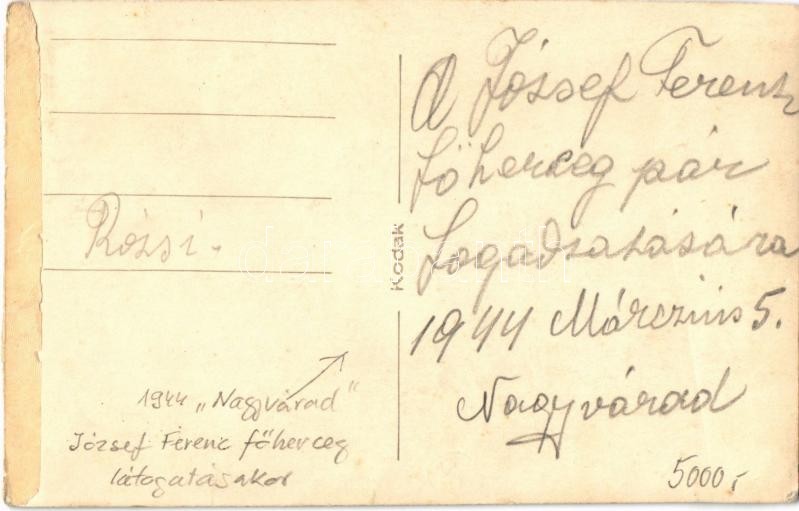 A József Ferenz
főherceg pár
fogadtatására
1944 Márczius 5.
Nagyvárad
Rózsi.
Kodak
1944 „Nagyvárad"
József Ferenc főherceg
látogatásakor
5000,-